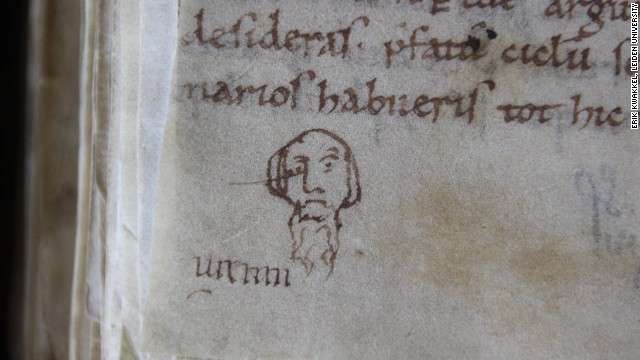 argu
desideras. pfatū ciclū
narios habueris tot hic
ERIK KWAKKEL, LEIDEN UNIVERSITY